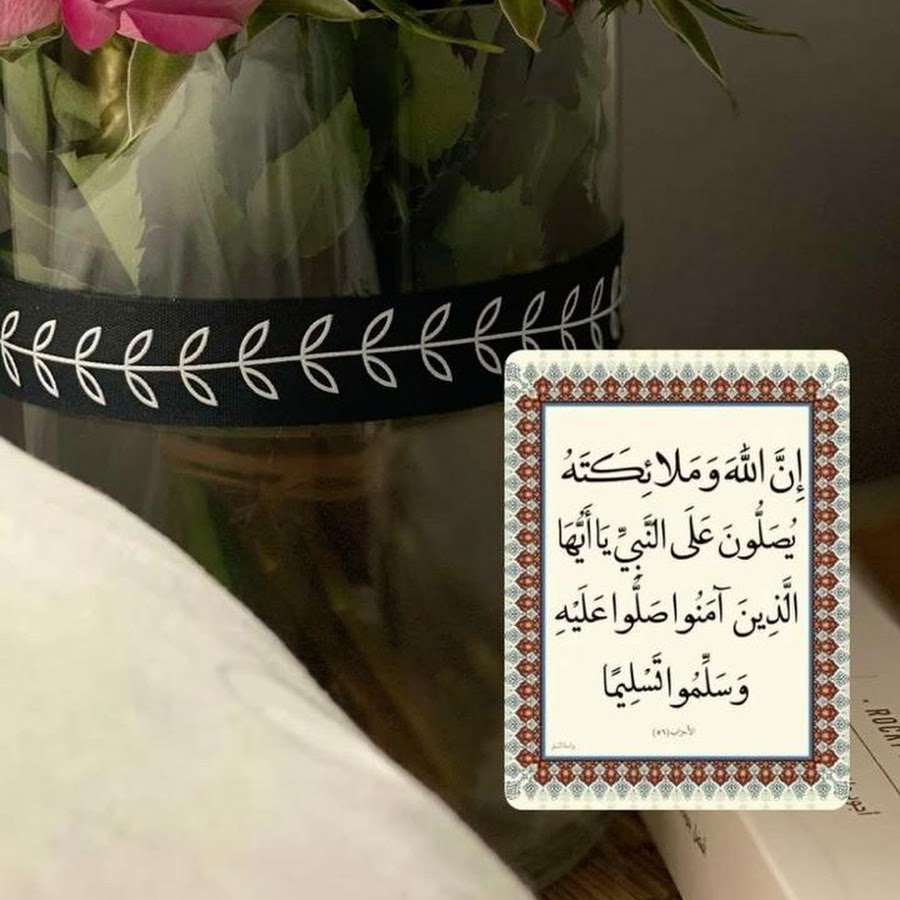 إِنَّ اللَّهَ وَمَلائِكَتَهُ
يُصَلُّونَ عَلَى النَّبِيِّ يَا أَيُّهَا
الَّذِينَ آمَنُوا صَلُّوا عَلَيْهِ
وَسَلِّمُوا تَسْلِيمًا
الأحزاب (٥٦)
. ROCKY